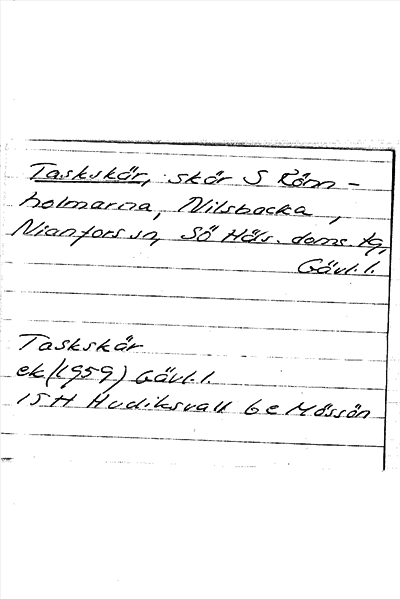 Taskskär, skär S Rönn-
holmarna, Nilsbacka,
Nianfors sn, Sö Häls. doms. tg,
Gävl. l.
Taskskär
ek (1959) Gävl. l.
15H Hudiksvall 6e Mössön